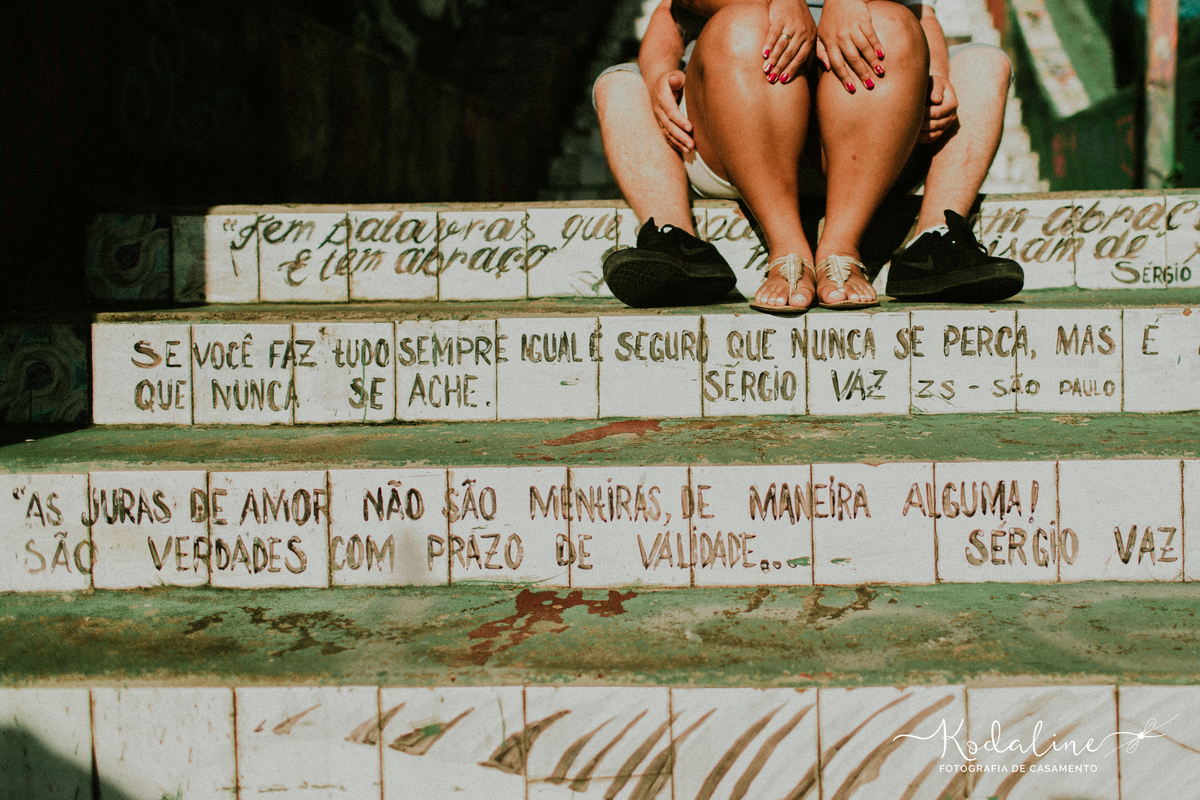 "Tem palavras que
E tem abraço
em abraç
isam de"
SÉRGIO
SE VOCÊ FAZ tUDO SEMPRE IGUAL É SEGURO QUE NUNCA SE PERCA, MAS E
QUE NUNCA SE ACHE. SÉRGIO VAZ ZS - SãO PAULO
"AS JURAS DE AMOR NÃO SÃO MENtIRAS, DE MANEIRA ALGUMA!
SÃO VERDADES COM PRAZO DE VALIDADE... SÉRGIO VAZ
Kodaline
FOTOGRAFIA DE CASAMENTO